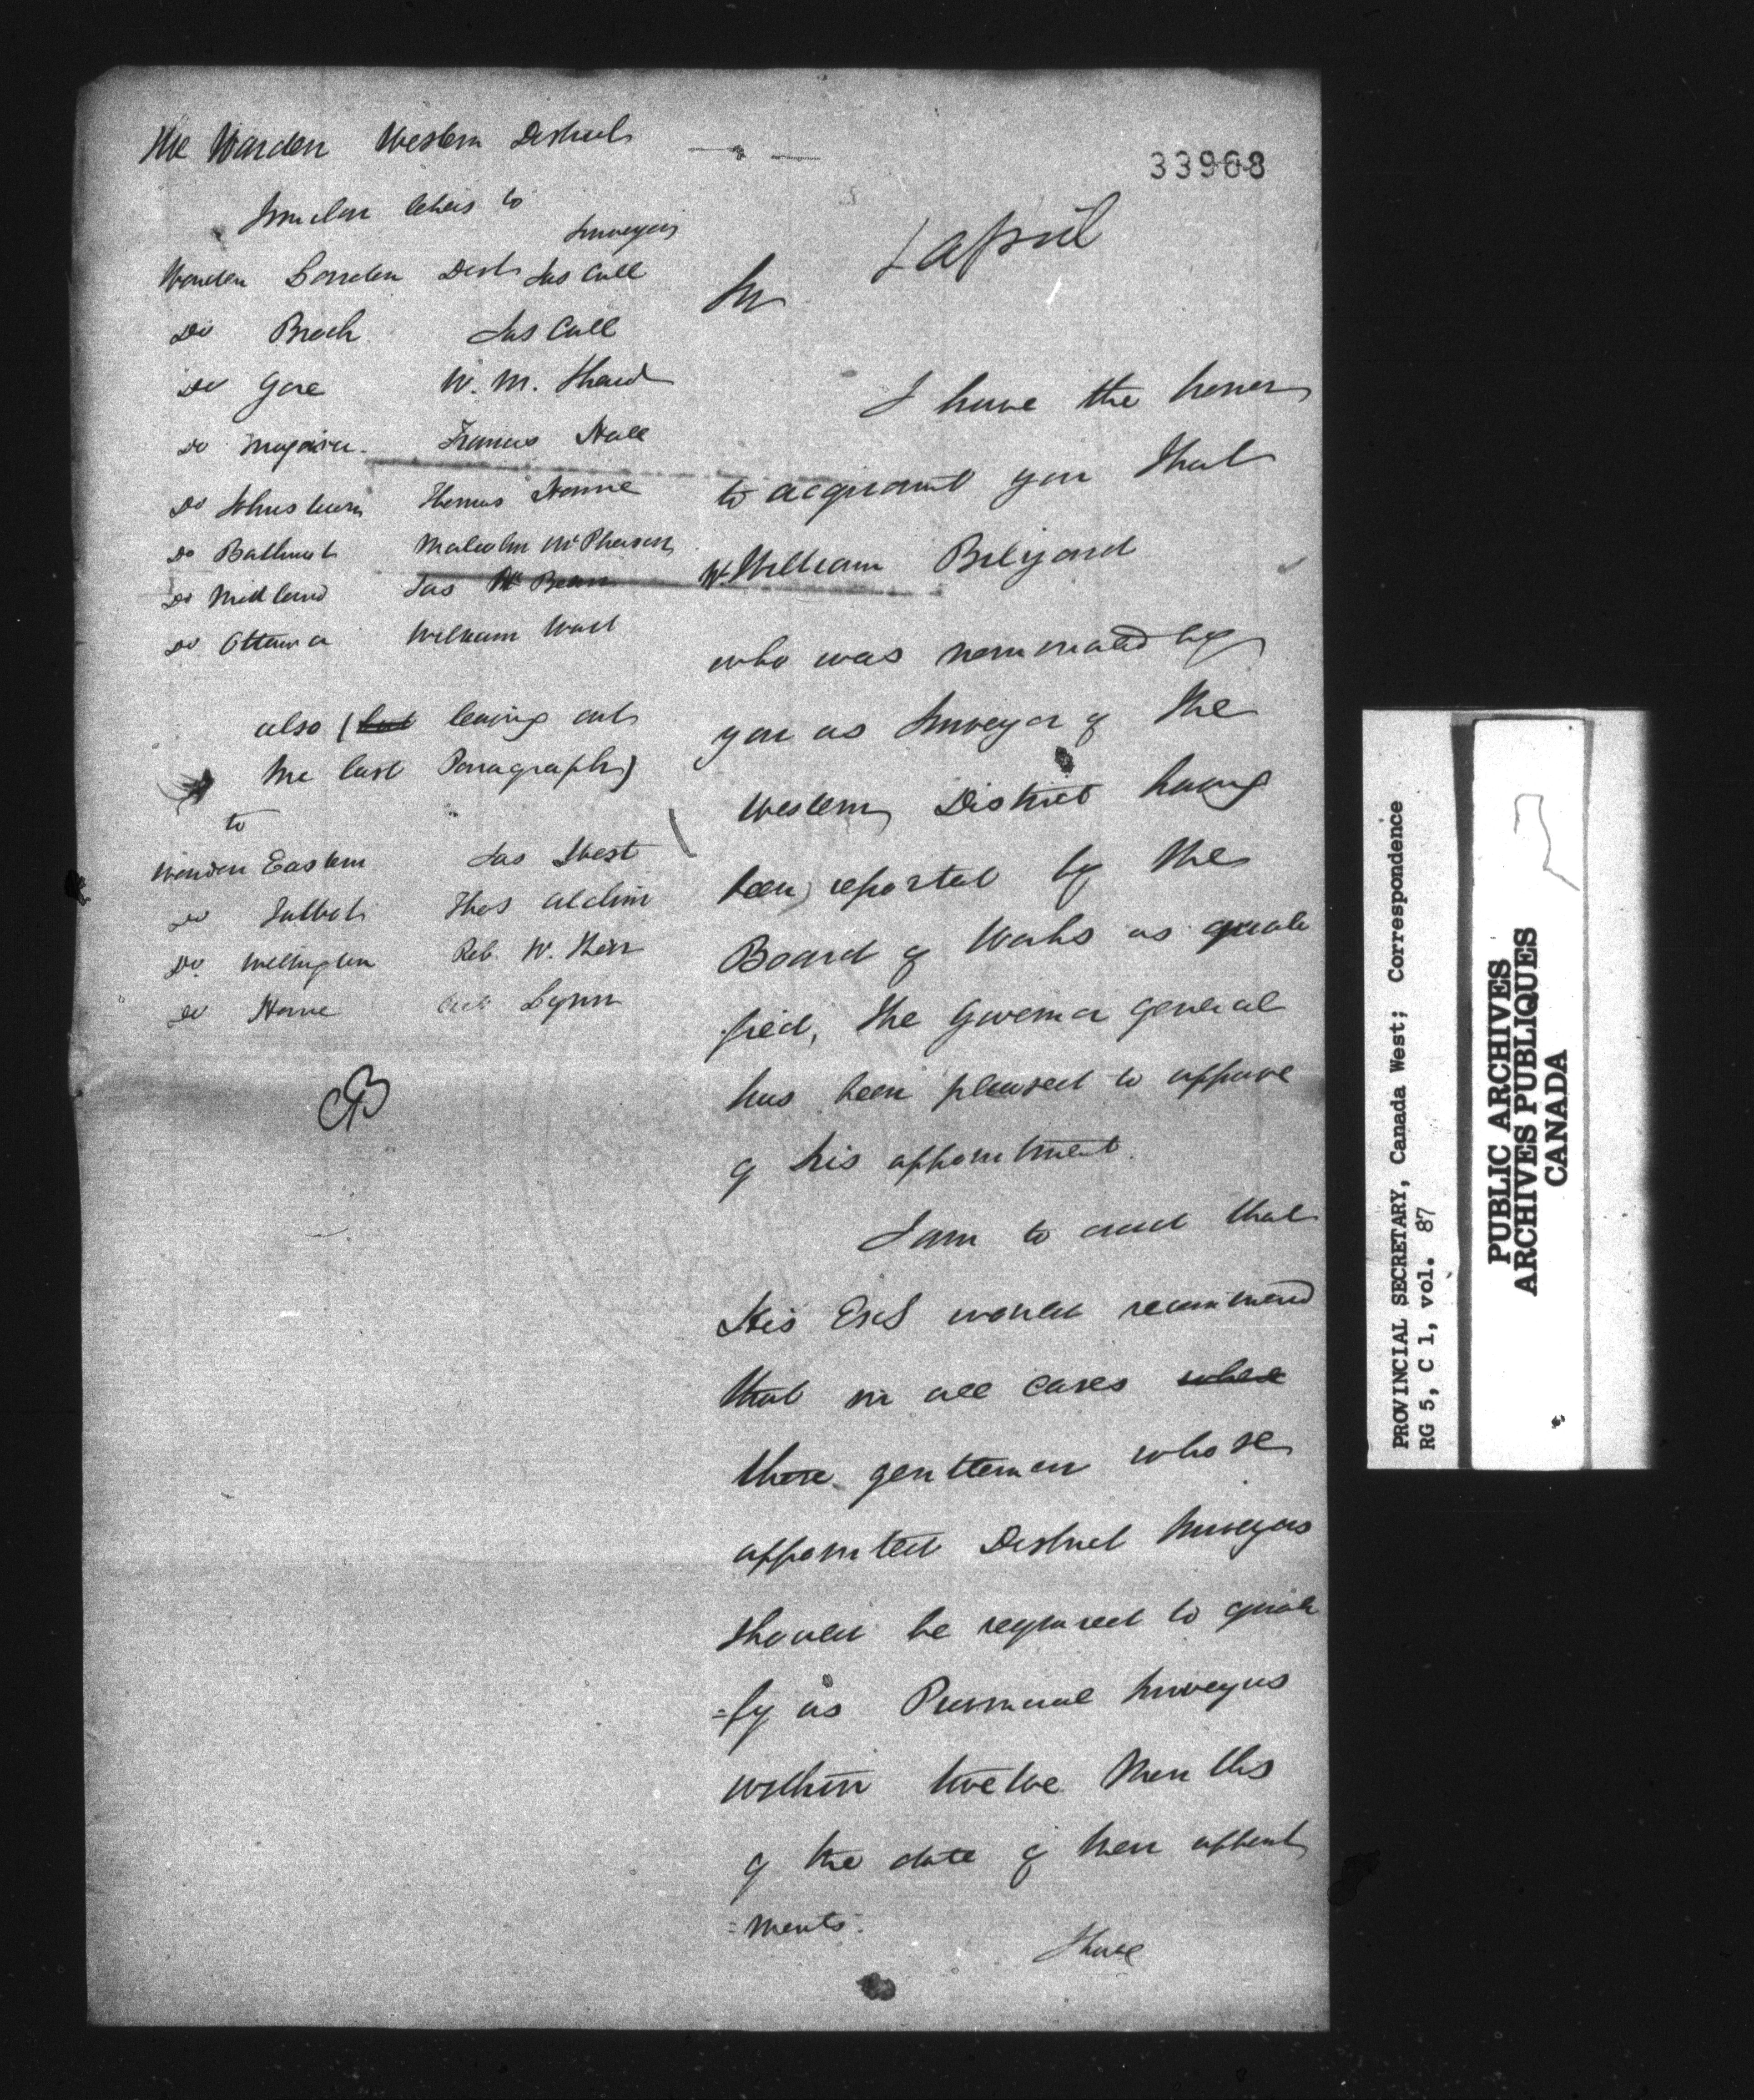 The Warden Western District
33968
Similar letters to
Surveyors
Warden London Dist Jas Cull
Do Brock Jas Cull
Do Gore W. M. Shaw
Do Niagara Francis Hall
Do Johnstown Thomas Horne
Do Bathurst Malcolm McPherson
Do Midland Jas McBean
Do Ottawa William Ward
also (but leaving out
the last Paragraph)
to
Warden Eastern Jas West
Do Talbot Thos
Do Wellington Rob. W. Kerr
Do Home Lynn
1 April
Sir
I have the honor
to acquaint you that
Mr William Bilyard
who was nominated by
you as Surveyor of the
Western District having
been reported by the
Board of Works as quali
fied, the Governor General
has been pleased to approve
of his appointment.
I am to add that
His Excl would recommend
that in all cases where
those gentlemen whose
appointed District Surveyors
should be required to quali
=fy as Provincial Surveyors
within twelve Months
of the date of their appoint
=ments.
I have
PROVINCIAL SECRETARY, Canada West; Correspondence
RG 5, C 1, vol. 87
PUBLIC ARCHIVES
ARCHIVES PUBLIQUES
CANADA